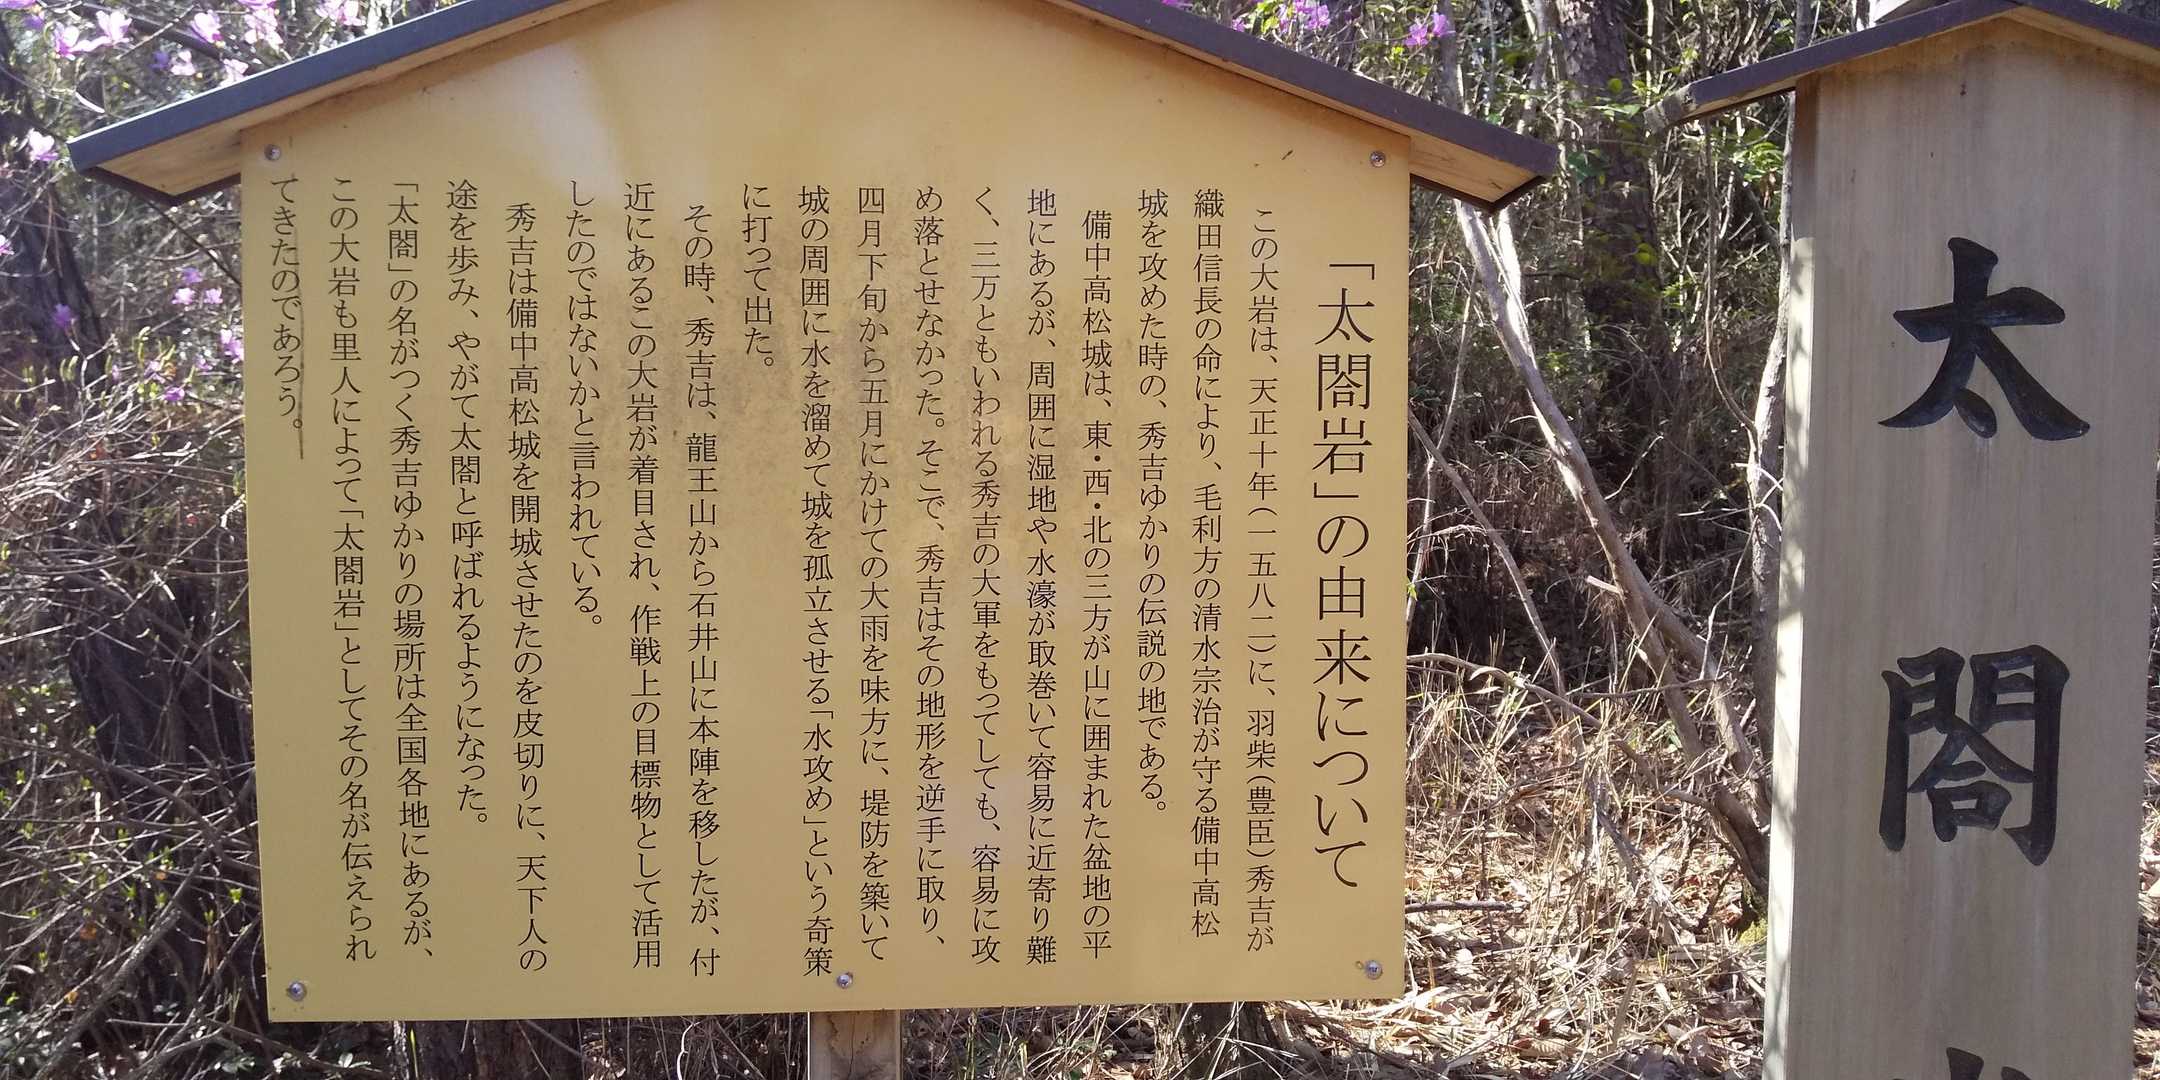 「太閤岩」の由来について
この大岩は、天正十年(一五八二)に、羽柴(豊臣)秀吉が
織田信長の命により、毛利方の清水宗治が守る備中高松
城を攻めた時の、秀吉ゆかりの伝説の地である。
備中高松城は、東・西・北の三方が山に囲まれた盆地の平
地にあるが、周囲に湿地や水濠が取巻いて容易に近寄り難
く、三万ともいわれる秀吉の大軍をもってしても、容易に攻
め落とせなかった。そこで、秀吉はその地形を逆手に取り、
四月下旬から五月にかけての大雨を味方に、堤防を築いて
城の周囲に水を溜めて城を孤立させる「水攻め」という奇策
に打って出た。
その時、秀吉は、龍王山から石井山に本陣を移したが、付
近にあるこの大岩が着目され、作戦上の目標物として活用
したのではないかと言われている。
秀吉は備中高松城を開城させたのを皮切りに、天下人の
途を歩み、やがて太閤と呼ばれるようになった。
「太閤」の名がつく秀吉ゆかりの場所は全国各地にあるが、
この大岩も里人によって「太閤岩」としてその名が伝えられ
てきたのであろう。
太閤